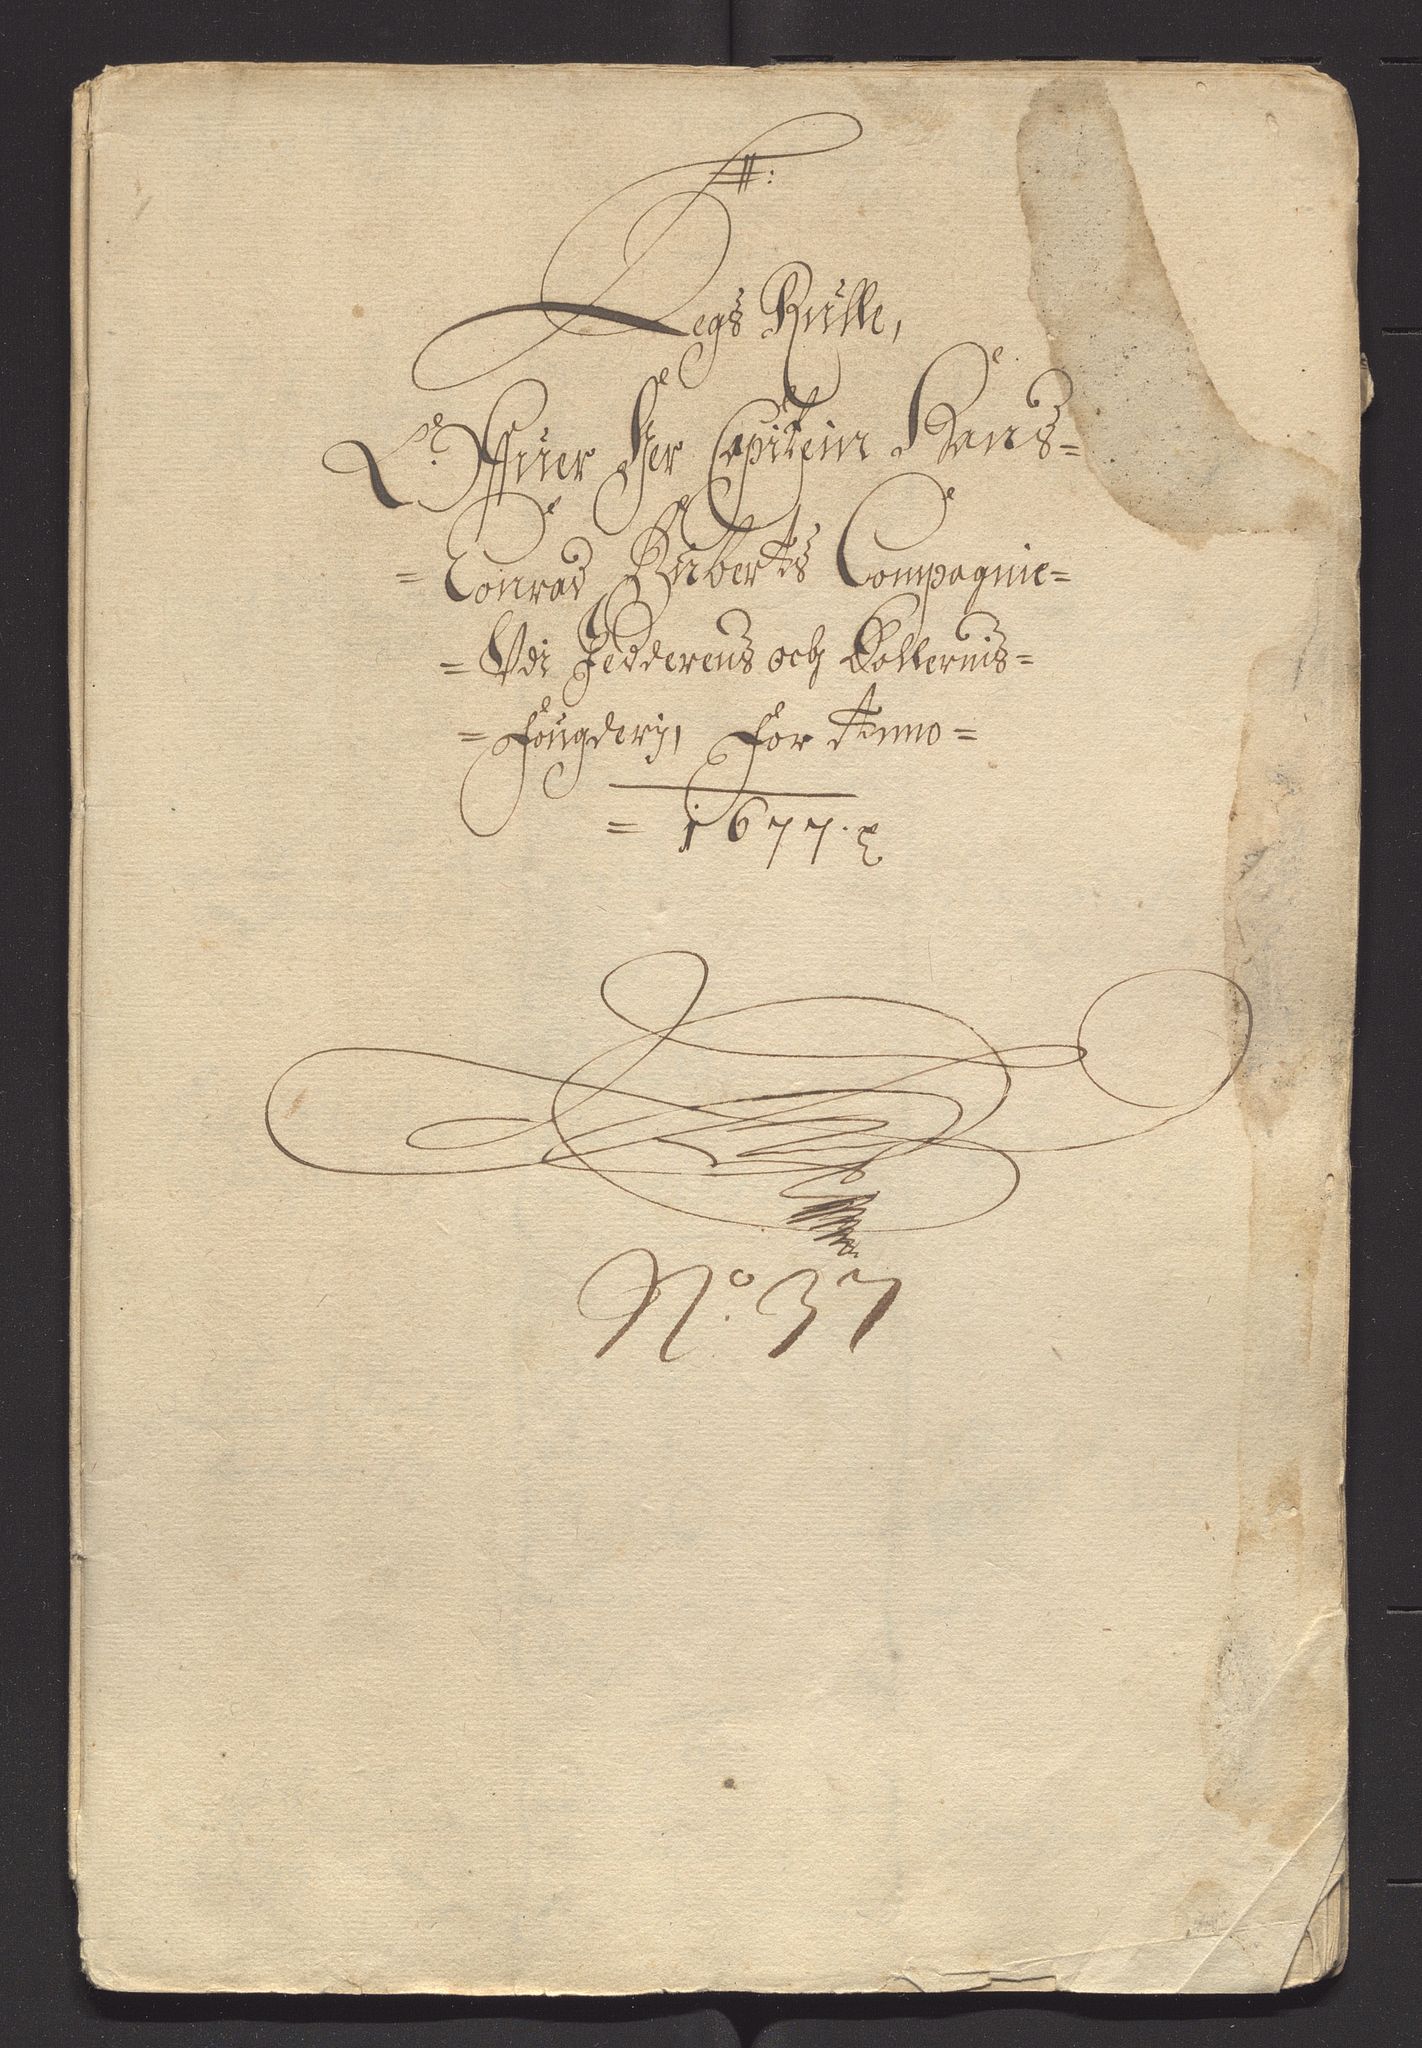 #:
Legs Rulle,
Offuer Her Capitein Hans-
= Conrad Huberts Compagnie=
= Vdi Jedderens och Dallernis=
= Fougderj, For Anno=
= 1677.
No. 37